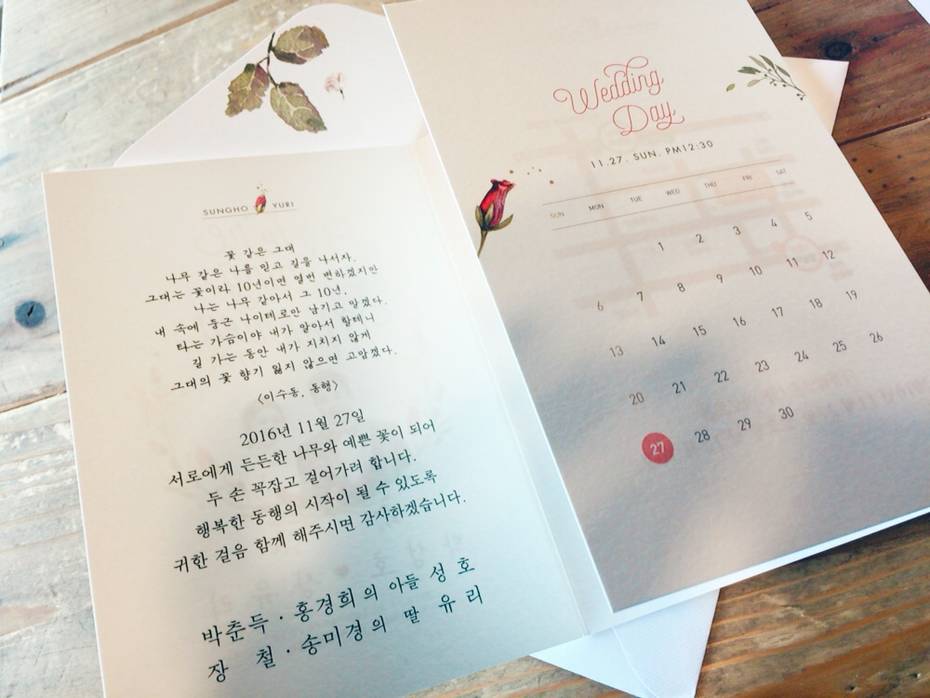 SUNGHO YURI
꽃 같은 그대
나무 같은 나를 믿고 길을 나서자.
그대는 꽃이라 10년이면 열번 변하겠지만
나는 나무 같아서 그 10년,
내 속에 둥근 나이테로만 남기고 말겠다.
타는 가슴이야 내가 알아서 할테니
길 가는 동안 내가 지치지 않게
그대의 꽃 향기 잃지 않으면 고맙겠다.
<이수동, 동행>
2016년 11월 27일
서로에게 든든한 나무와 예쁜 꽃이 되어
두 손 꼭잡고 걸어가려 합니다.
행복한 동행의 시작이 될 수 있도록
귀한 걸음 함께 해주시면 감사하겠습니다.
박춘득 · 홍경희 의 아들 성 호
장 철 · 송미경 의 딸 유 리
Wedding
Day
11.27. SUN. PM12:30
SUN MON TUE WED THU FRI SAT
1 2 3 4 5
6 7 8 9 10 11 12
13 14 15 16 17 18 19
20 21 22 23 24 25 26
27 28 29 30